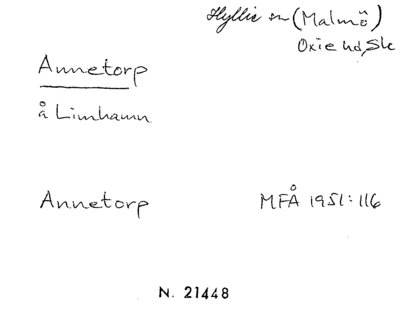 Hyllie sn (Malmö)
Oxie hd, Sk
Annetorp
å Limhamn
Annetorp MFÅ 1951:116
N. 21448